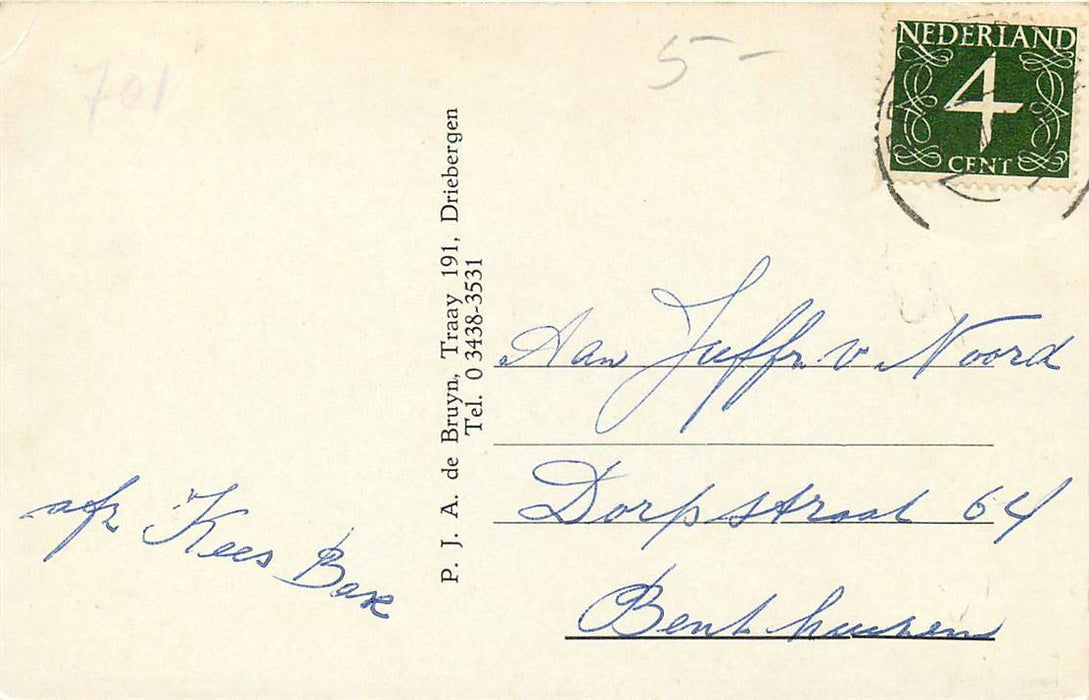 701
5-
NEDERLAND
4
CENT
P. J. A. de Bruyn, Traay 191, Driebergen
Tel. 0 3438-3531
Aan Juffr. v. Noord
Dorpstraat 64
Benthuizen
afz Kees Bax